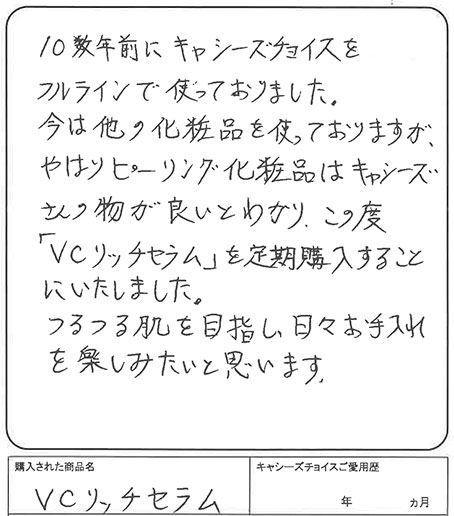 10数年前にキャシーズチョイスを
フルラインで使っておりました。
今は他の化粧品を使っておりますが、
やはりピーリング化粧品はキャシーズ
さんの物が良いとわかり、この度
「VCリッチセラム」を定期購入すること
にいたしました。
つるつる肌を目指し、日々お手入れ
を楽しみたいと思います。
購入された商品名
VCリッチセラム
キャシーズチョイスご愛用歴
年 ヵ月